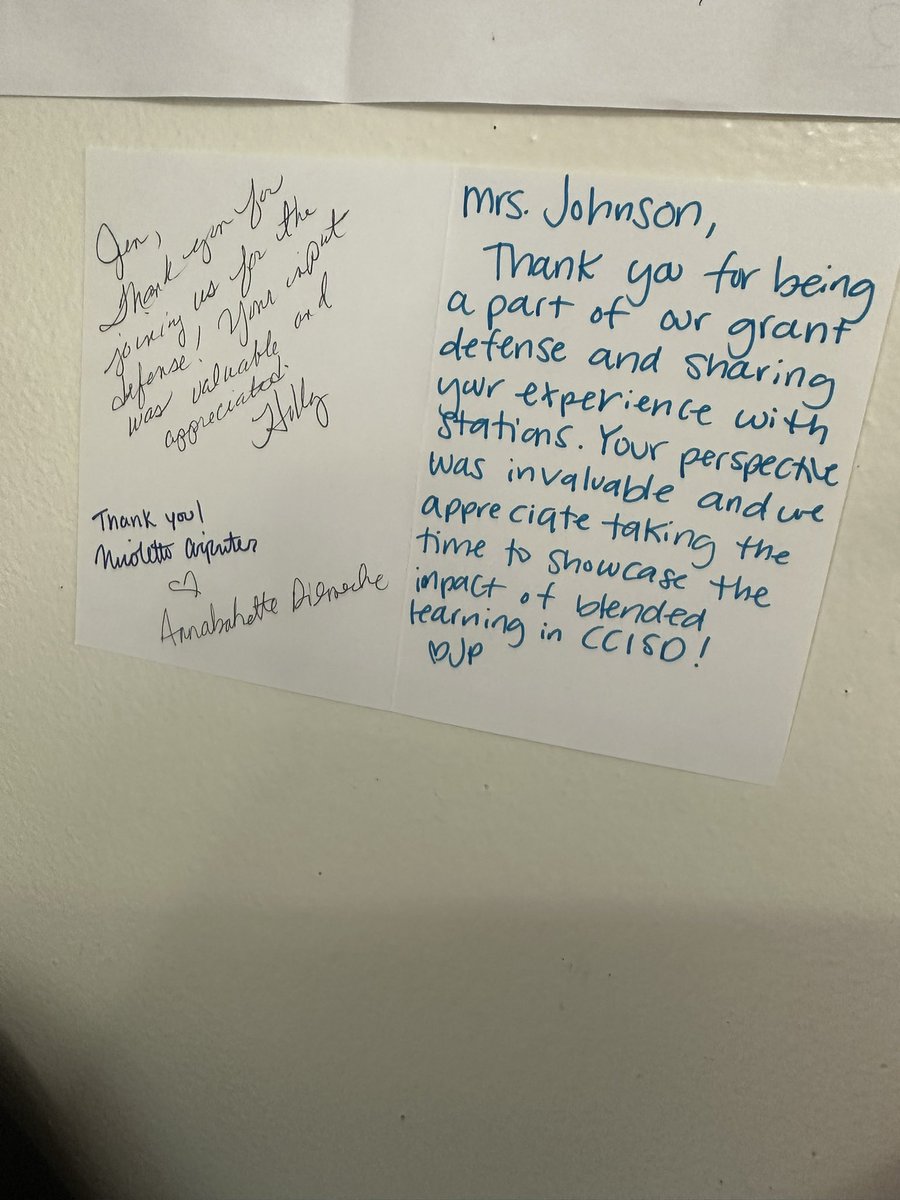 Jen,
Thank you for
joining us for the
defense! Your input
was valuable and
appreciated.
Holly
Thank you!
mrs. Johnson,
Thank you for being
a part of our grant
defense and sharing
your experience with
stations. Your perspective
was invaluable and we
appreciate taking the
time to showcase the
impact of blended
learning in CCISD!
♡JP